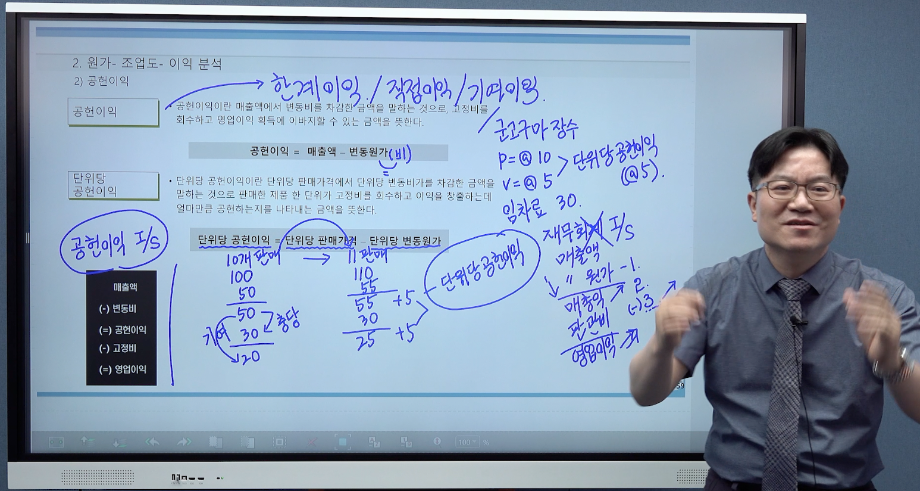 2. 원가- 조업도- 이익 분석
2) 공헌이익
한계이익 / 직접이익 / 기여이익.
공헌이익
• 공헌이익이란 매출액에서 변동비를 차감한 금액을 말하는 것으로, 고정비를
회수하고 영업이익 획득에 이바지할 수 있는 금액을 뜻한다.
공헌이익 = 매출액 – 변동원가(비)
단위당
공헌이익
• 단위당 공헌이익이란 단위당 판매가격에서 단위당 변동비가를 차감한 금액을
말하는 것으로 판매한 제품 한 단위가 고정비를 회수하고 이익을 창출하는데
얼마만큼 공헌하는지를 나타내는 금액을 뜻한다.
단위당 공헌이익 = 단위당 판매가격 – 단위당 변동원가
공헌이익 I/S
매출액
(-) 변동비
(=) 공헌이익
(-) 고정비
(=) 영업이익
10개 판매
100
50
50
30
20
기여
충당
11 판매
110
55
55 +5
30
25 +5
단위당 공헌이익
군고구마 장수
P = @ 10
V = @ 5
> 단위당 공헌이익
(@5).
임차료 30.
재무회계 I/S
매출액
〃 원가 -1.
매총익 2.
판관비 (-)3
영업이익
100 %